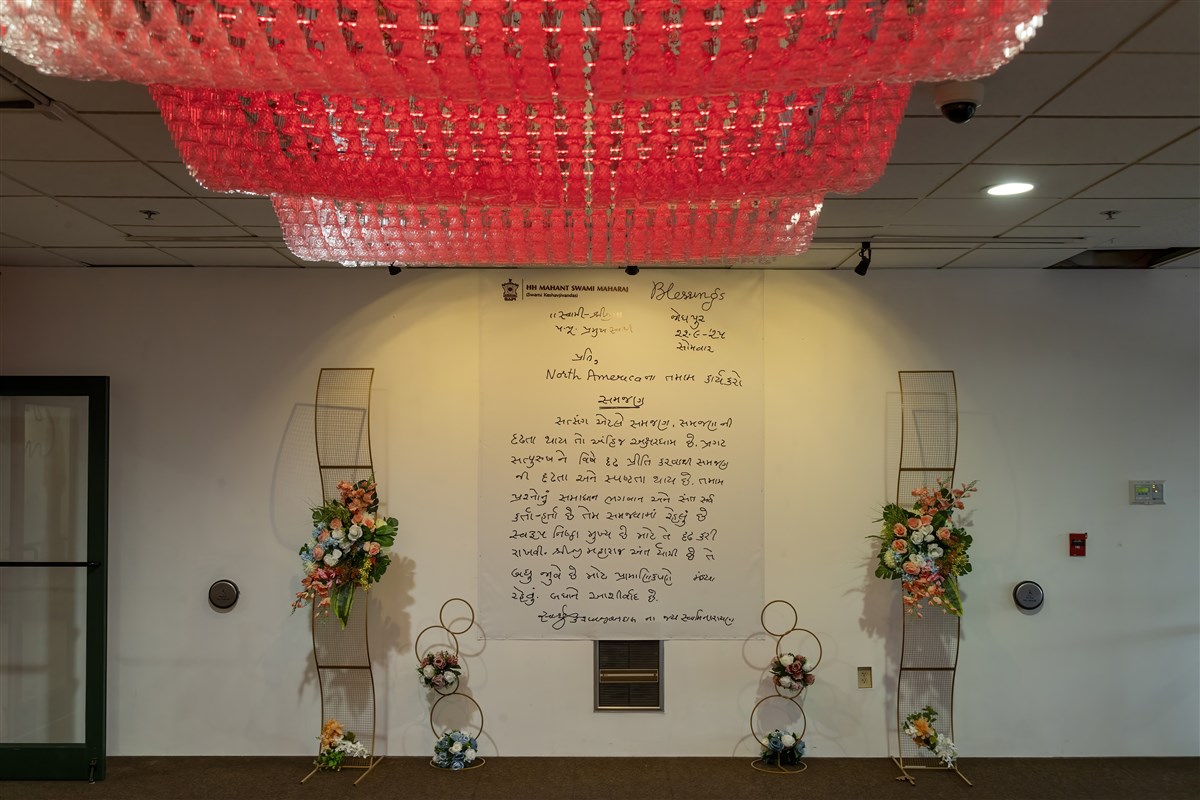 HH MAHANT SWAMI MAHARAJ
(Swami Keshavjivandas)
BAPS
Blessings
॥ સ્વામી-શ્રીજી
પ.પૂ. પ્રમુખસ્વામી
જોધપુર
૨૨-૯-'૨૫
સોમવાર
પ્રતિ,
North Americaના તમામ કાર્યકરો
સમજણ
સત્સંગ એટલે સમજણ. સમજણની
દૃઢતા થાય તો અહીંજ અક્ષરધામ છે. પ્રગટ
સત્પુરુષને વિષે દૃઢ પ્રીતિ કરવાથી સમજણ
ની દૃઢતા અને સ્પષ્ટતા થાય છે. તમામ
પ્રશ્નોનું સમાધાન ભગવાન અને સંત સર્વ
કર્તા-હર્તા છે તેમ સમજવામાં રહેલું છે
સ્વરૂપ નિષ્ઠા મુખ્ય છે માટે તે દૃઢ કરી
રાખવી. શ્રીજી મહારાજ સંત દ્વારા છે તે
બધું જુવે છે માટે પ્રામાણિકપણે મંડ્યા
રહેવું. બધાને આશીર્વાદ છે.
ના જય સ્વામિનારાયણ